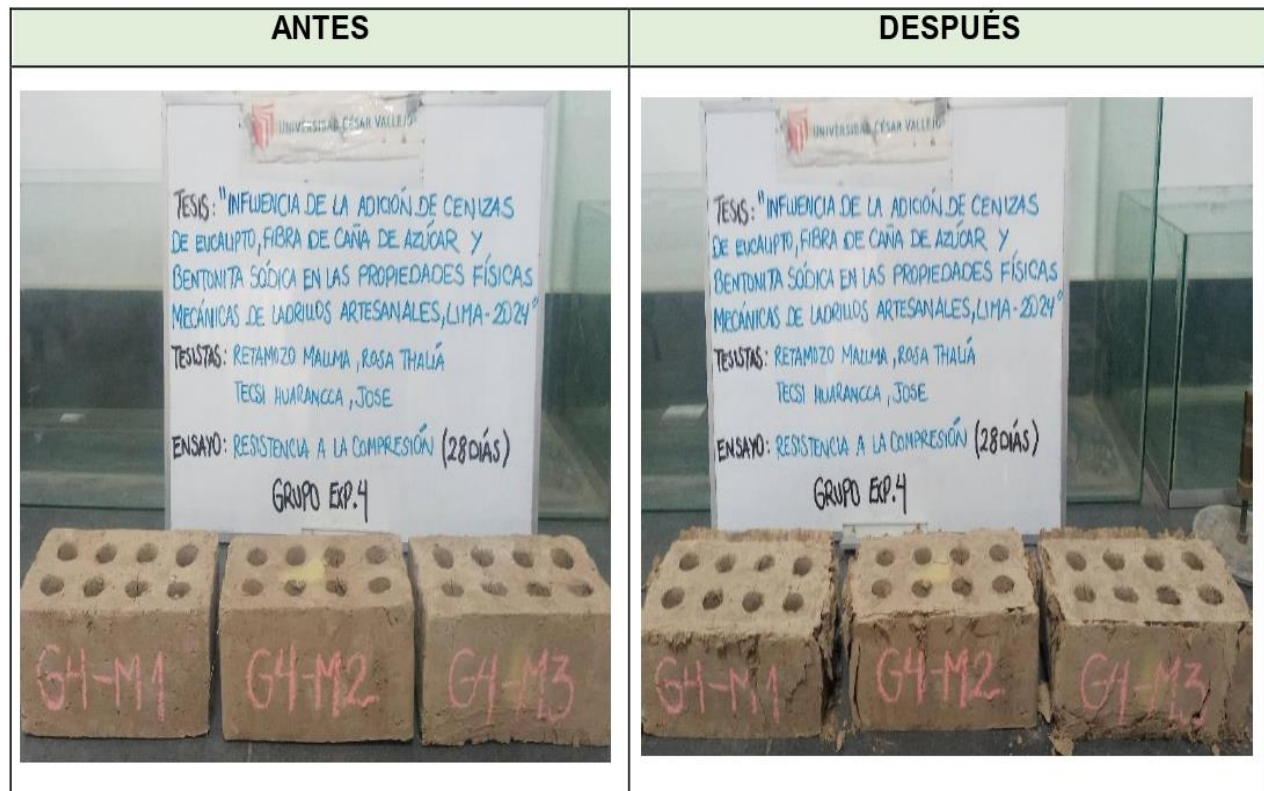 ANTES
DESPUÉS
UNIVERSIDAD CÉSAR VALLEJO
TESIS: "INFLUENCIA DE LA ADICIÓN DE CENIZAS
DE EUCALIPTO, FIBRA DE CAÑA DE AZÚCAR Y
BENTONITA SÓDICA EN LAS PROPIEDADES FÍSICAS
MECÁNICAS DE LADRILLOS ARTESANALES, LIMA-2024"
TESISTAS: RETAMOZO MALLMA, ROSA THALIÁ
TECSI HUARANCCA, JOSE
ENSAYO: RESISTENCIA A LA COMPRESIÓN (28 DIÁS)
GRUPO EXP.4
G4-M1
G4-M2
G4-M3
UNIVERSIDAD CÉSAR VALLEJO
TESIS: "INFLUENCIA DE LA ADICIÓN DE CENIZAS
DE EUCALIPTO, FIBRA DE CAÑA DE AZÚCAR Y
BENTONITA SÓDICA EN LAS PROPIEDADES FÍSICAS
MECÁNICAS DE LADRILLOS ARTESANALES, LIMA-2024"
TESISTAS: RETAMOZO MALLMA, ROSA THALIÁ
TECSI HUARANCCA, JOSE
ENSAYO: RESISTENCIA A LA COMPRESIÓN (28 DIÁS)
GRUPO EXP.4
G4-M1
G4-M2
G4-M3